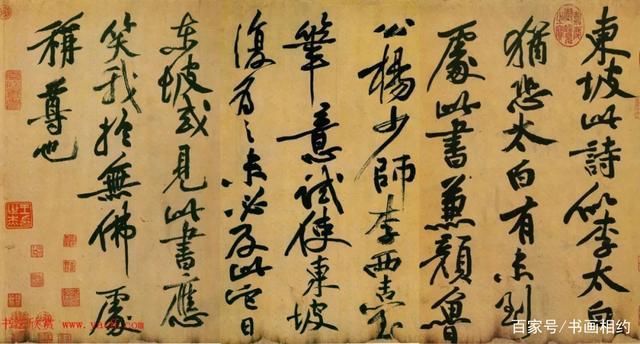 東坡此詩似李太白
猶恐太白有未到
處此書兼顏魯
公楊少師李西臺
筆意試使東坡
復為之未必及此它日
東坡或見此書應
笑我於無佛處
稱尊也
书法欣赏
百家号/书画相约